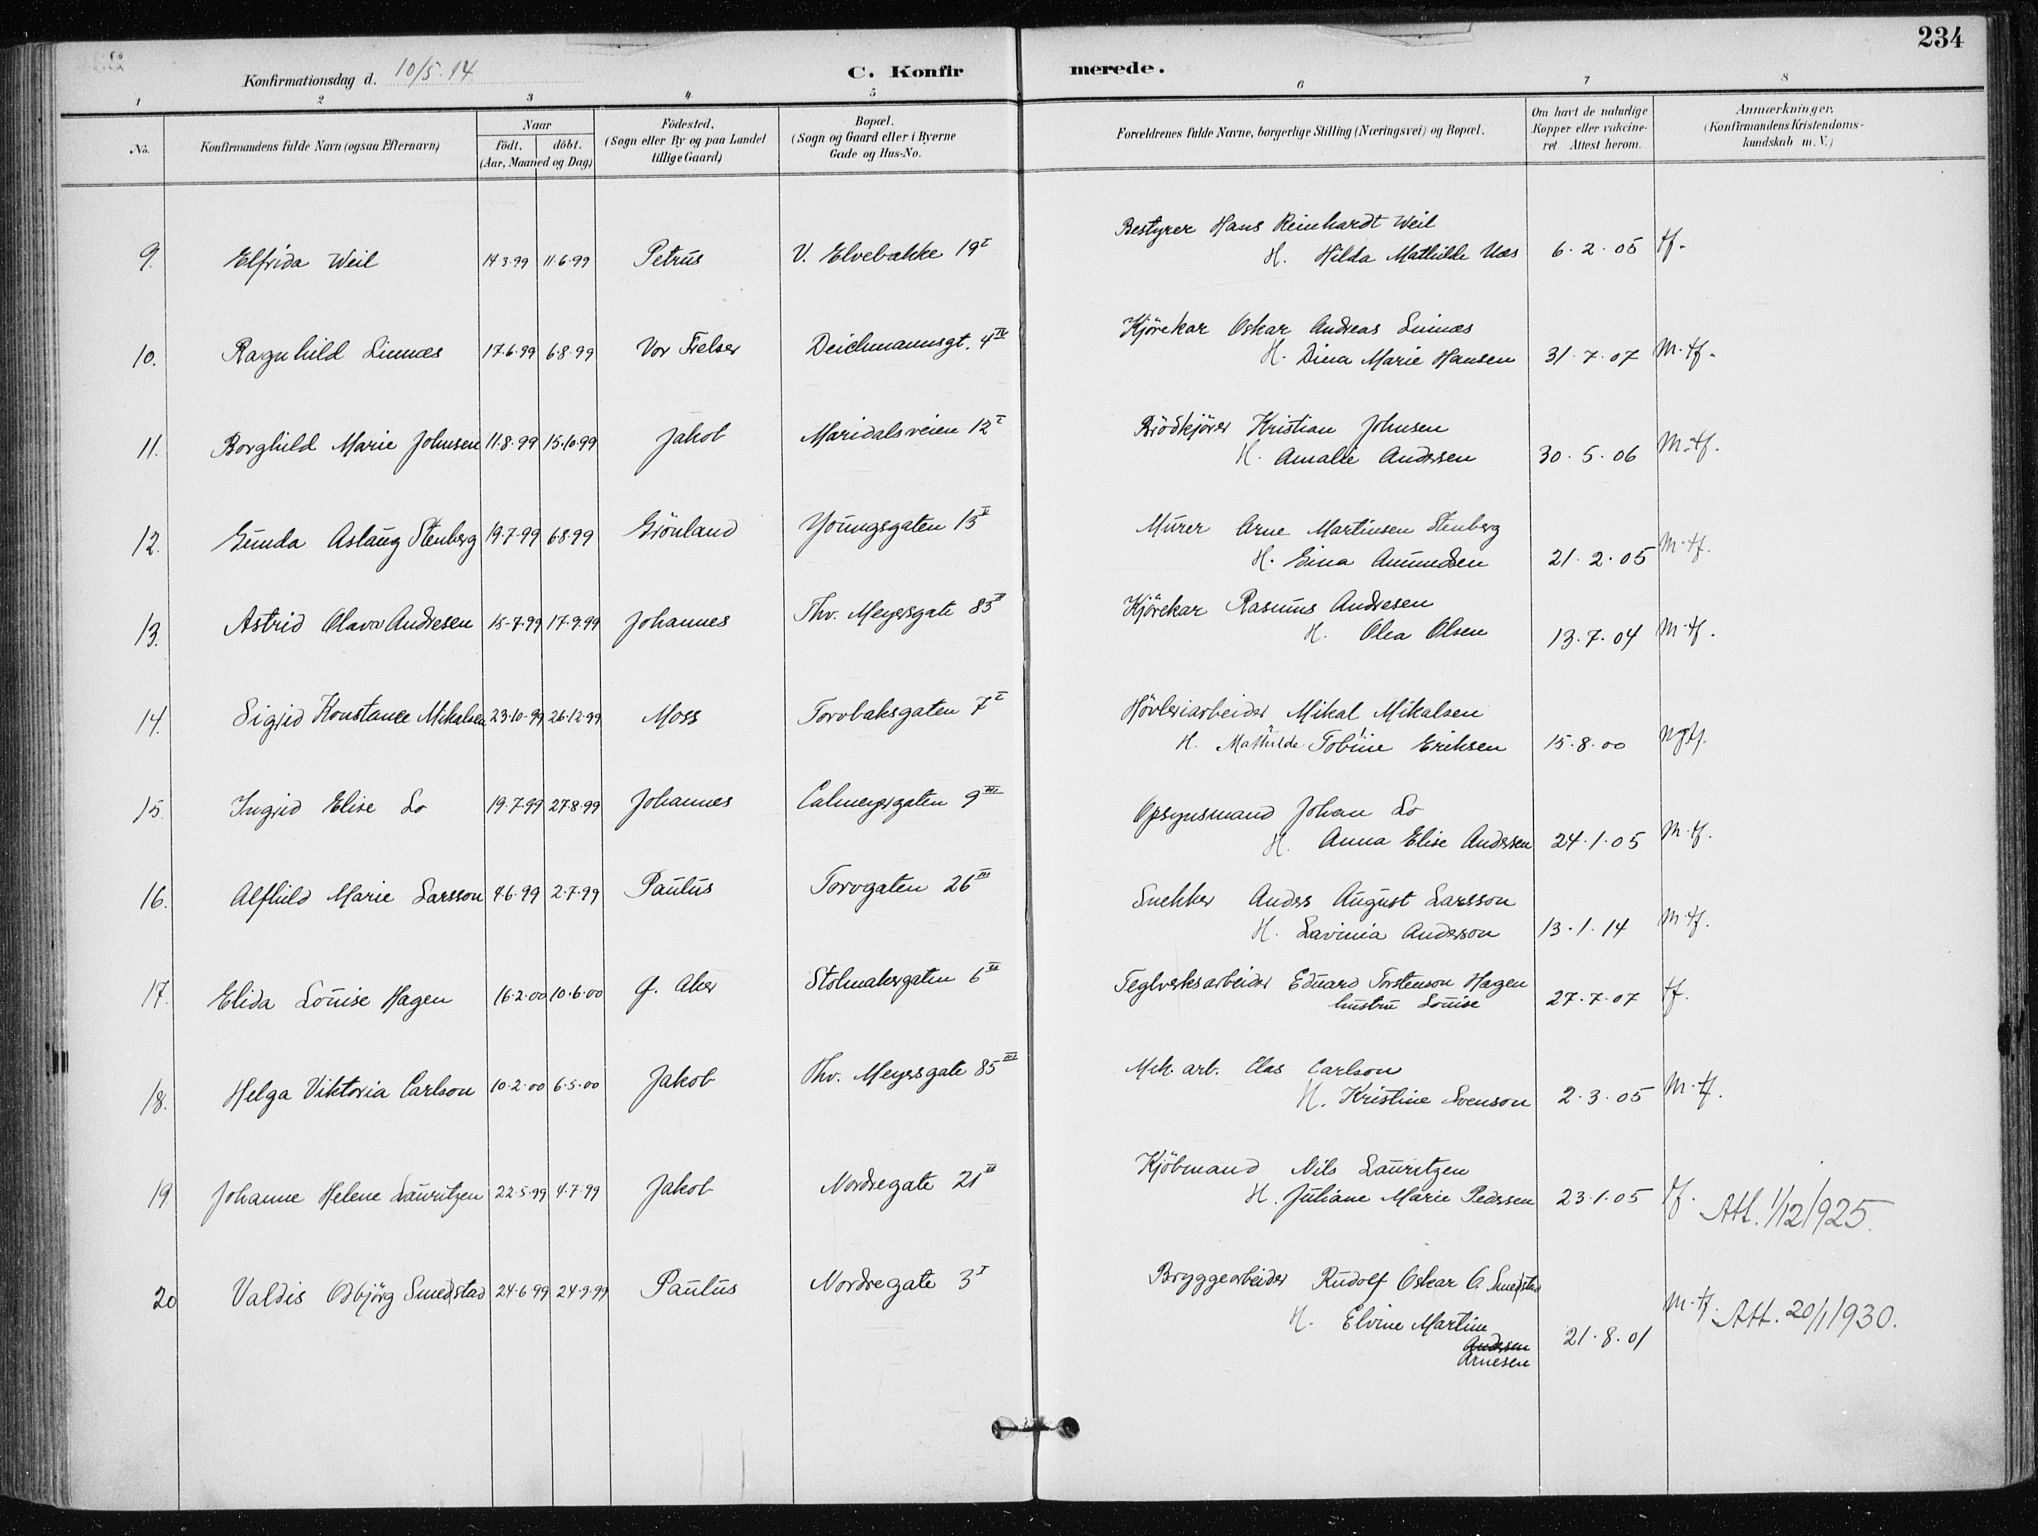 234
Konfirmationsdag d. 10/5 14.
C. Konfirmerede.
1 2 3 4 5 6 7 8
No. Konfirmandens fulde Navn (ogsaa Efternavn) Naar födt. döbt. (Aar, Maaned og Dag) Födested. (Sogn eller By og paa Landet tillige Gaard) Bopæl. (Sogn og Gaard eller i Byerne Gade og Hus-No. Forældrenes fulde Navne, borgerlige Stilling (Næringsvei) og Bopæl. Om havt de naturlige Kopper eller vakcineret Attest herom. Anmærkninger. (Konfirmandens Kristendomskundskab m. V.)
9. Elfrida Weil 14·3·99 11·6·99 Petrus V. Elvebakke 19 I Bestyrer Hans Reinhardt Weil
H. Hilda Mathilde Næs 6·2·05 tf.
10. Ragnhild Linnæs 17·6·99 6·8·99 Vor Frelser Deichmannsgt. 4 IV Kjörekar Oskar Andreas Linnæs
H. Dina Marie Hansen 31·7·07 M·tf.
11. Borghild Marie Johnsen 11·8·99 15·10·99 Jakob Maridalsveien 12 I Brödkjörer Kristian Johnsen
H. Amalie Andersen 30·5·06 M·tf.
12. Gunda Aslaug Stenberg 19·7·99 6·8·99 Grönland Youngsgaten 13 V Murer Arne Martinsen Stenberg
H. Gina Amundsen 21·2·05 M·tf.
13. Astrid Olava Andresen 15·7·99 17·9·99 Johannes Thv. Meyersgate 83 Kjörekar Rasmus Andresen
H. Olea Olsen 13·7·04 M·tf.
14. Sigrid Konstance Mikalsen 23·10·99 26·12·99 Moss Torvbaksgaten 7 I Hövleriarbeider Mikal Mikalsen
H. Mathilde Tobine Eriksen 15·8·00 Mgtf.
15. Ingrid Elise Lo 19·7·99 27·8·99 Johannes Calmeyergaten 9 III Opsynsmand Johan Lo
H. Anna Elise Andersen 24·1·05 M·tf.
16. Alfhild Marie Larsson 4·6·99 2·7·99 Paulus Torvgaten 26 III Snekker Anders August Larsson
H. Lavinia Anderson 13·1·14 M·tf.
17. Elida Louise Hagen 16·2·00 10·6·00 Ø. Aker Stolmakergaten 6 Teglverksarbeider Eduard Torstenson Hagen
hustru Louise 27·7·07 tf.
18. Helga Viktoria Carlson 10·2·00 6·5·00 Jakob Thv. Meyersgate 85 III Mek. arb. Clas Carlson
H. Kristine Svenson 2·3·05 M·tf.
19 Johanne Helene Lauritzen 22·5·99 4·7·99 Jakob Nordregate 21 II Kjöbmand Nils Lauritzen
H. Juliane Marie Pedersen 23·1·05 tf. Att. 1/12/925.
20 Valdis Odbjörg Smedstad 24·6·99 24·9·99 Paulus Nordregate 3 I Bryggearbeider Rudolf Oskar O. Smedstad
H. Elvine Martine
Andersen
Arnesen 21·8·01 M·tf. Att. 20/1 1930.